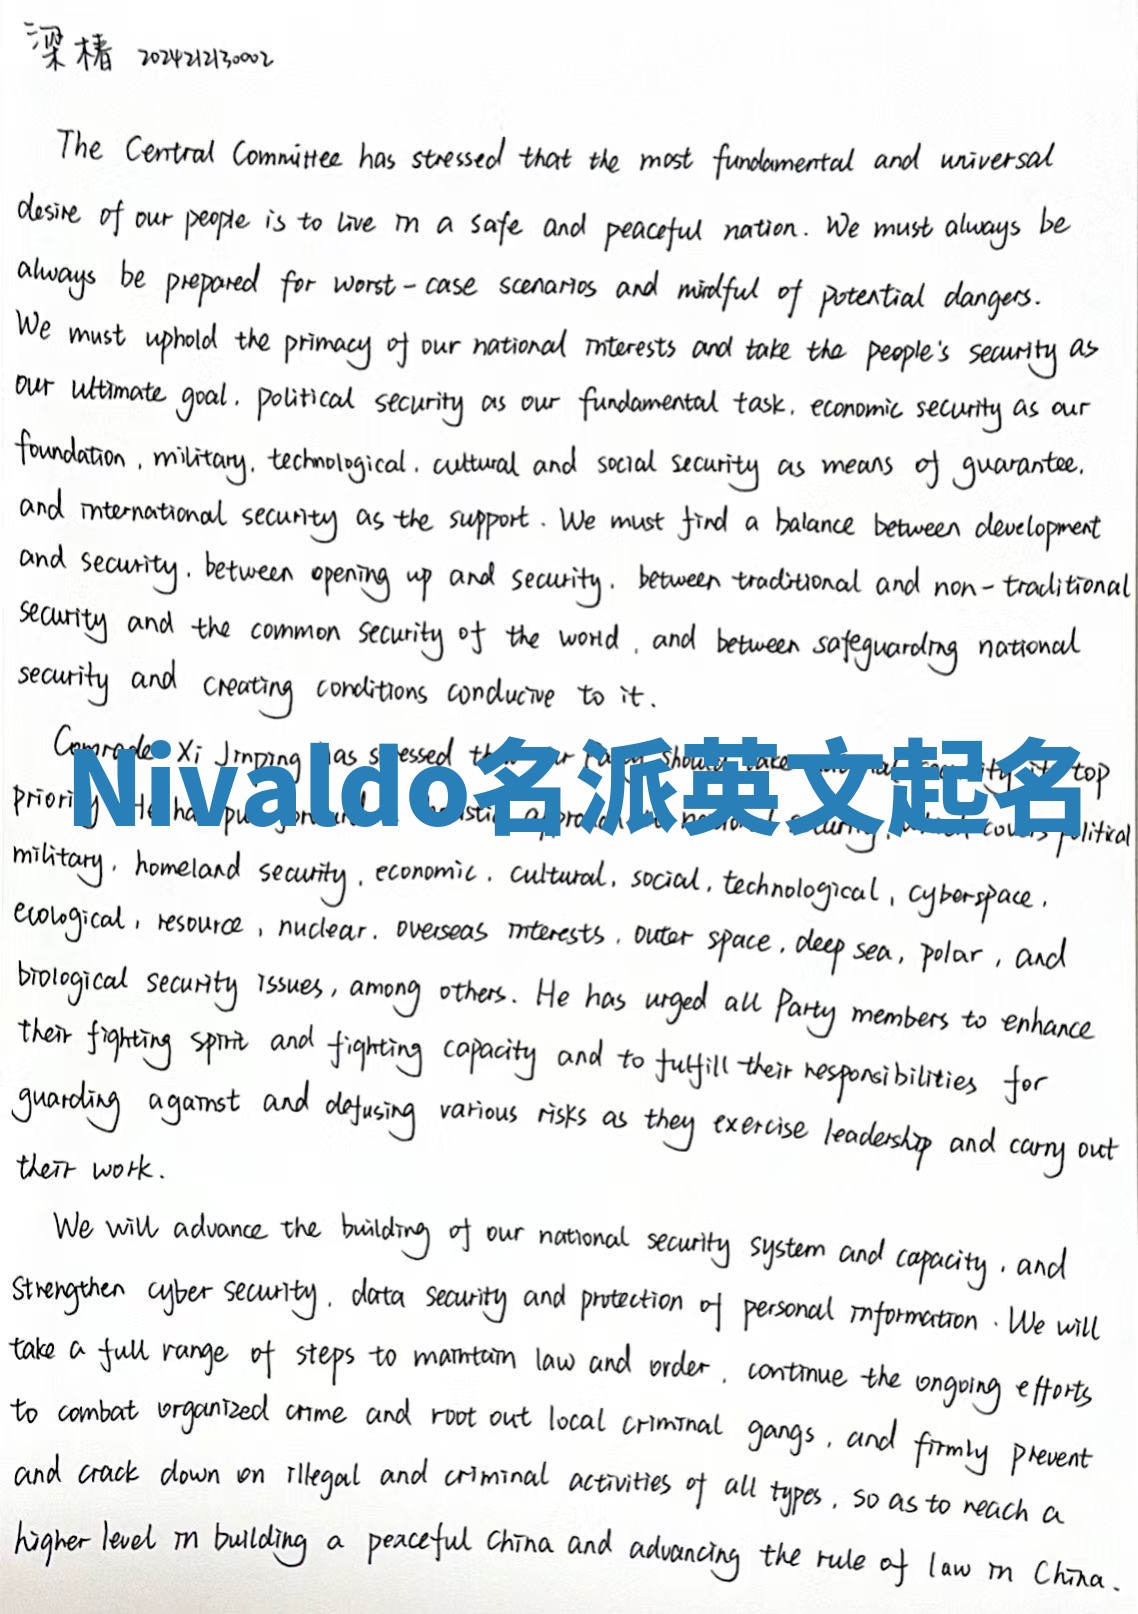 梁椿 2024212130002
The Central Committee has stressed that the most fundamental and universal
desire of our people is to live in a safe and peaceful nation. We must always be
always be prepared for worst-case scenarios and mindful of potential dangers.
We must uphold the primacy of our national interests and take the people's security as
our ultimate goal, political security as our fundamental task, economic security as our
foundation, military, technological, cultural and social security as means of guarantee,
and international security as the support. We must find a balance between development
and security, between opening up and security, between traditional and non-traditional
security and the common security of the world, and between safeguarding national
security and creating conditions conducive to it.
Comrade Xi Jinping has stressed top
Nivaldo名派英文起名
priority. He has political
military, homeland security, economic, cultural, social, technological, cyberspace,
ecological, resource, nuclear, overseas interests, outer space, deep sea, polar, and
biological security issues, among others. He has urged all Party members to enhance
their fighting spirit and fighting capacity and to fulfill their responsibilities for
guarding against and defusing various risks as they exercise leadership and carry out
their work.
We will advance the building of our national security system and capacity, and
strengthen cyber security, data security and protection of personal information. We will
take a full range of steps to maintain law and order, continue the ongoing efforts
to combat organized crime and root out local criminal gangs, and firmly prevent
and crack down on illegal and criminal activities of all types, so as to reach a
higher level in building a peaceful China and advancing the rule of law in China.